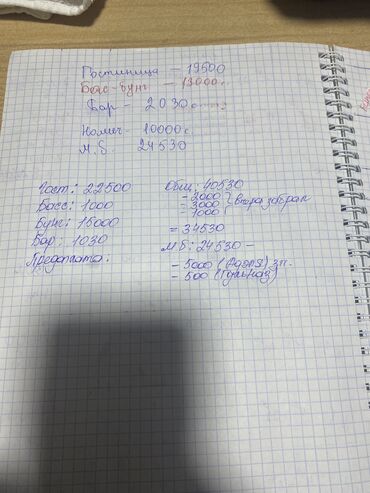 Гостиница — 19500
Басс-бунг — 13000 с.
Бар — 2030
Налич — 10000 с.
М.Б. 24530
Гост: 22500
Басс: 1000
Бунг: 16000
Бар: 1030
Предоплата:
Общ: 40530
- 2000
- 3000 } Вчера забрал
- 1000
= 34530
МБ: 24530 —
- 5000 ( ) зп.
- 500 (Гульназ)